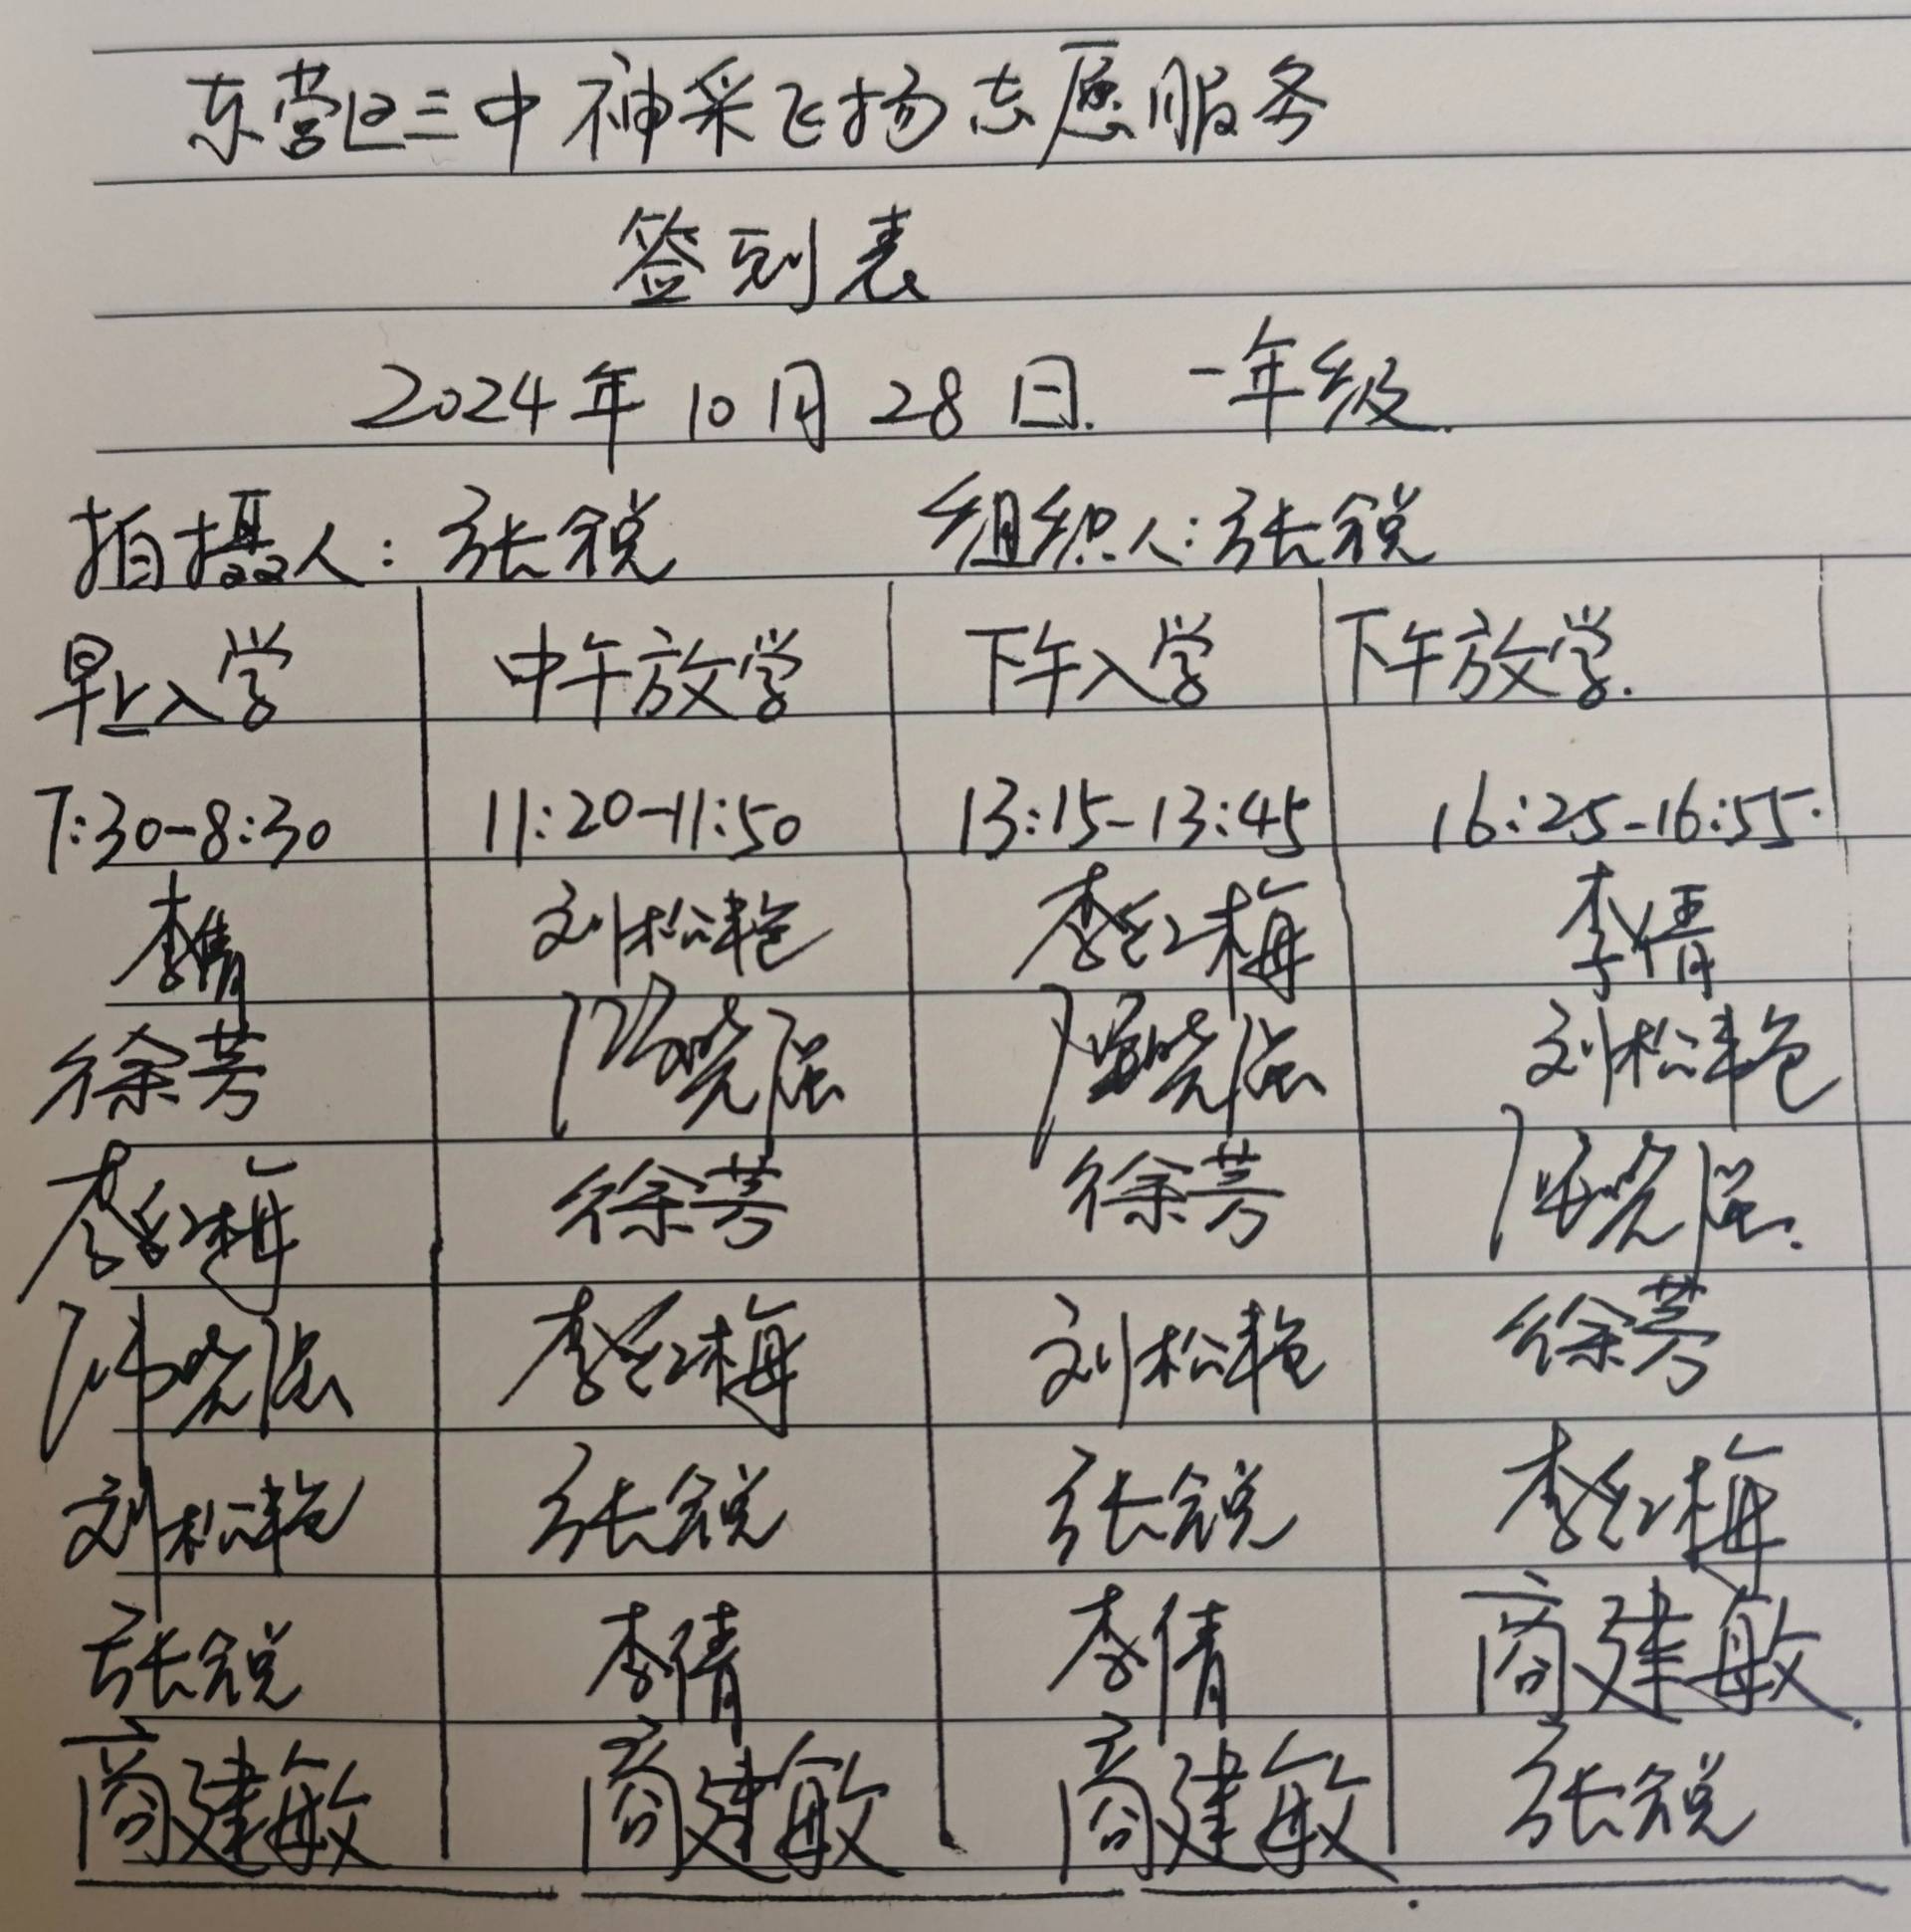 东营区三中神采飞扬志愿服务
签到表
2024年10月28日. 一年级.
拍摄人：张锐 组织人：张锐
早上入学 中午放学 下午入学 下午放学.
7:30-8:30 11:20-11:50 13:15-13:45 16:25-16:55.
李倩 刘松艳 李红梅 李倩
徐芳 刘松艳
李红梅 徐芳 徐芳
李红梅 刘松艳 徐芳
刘松艳 张锐 张锐 李红梅
张锐 李倩 李倩 商建敏.
商建敏 商建敏 商建敏 张锐